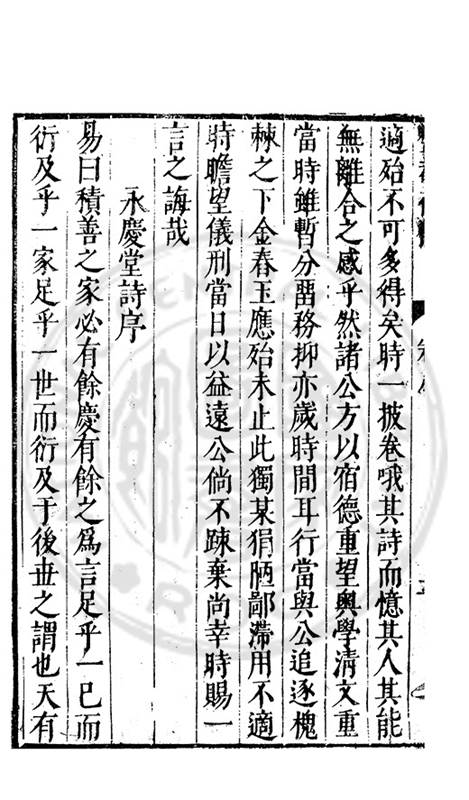 適殆不可多得矣時一披卷哦其詩而憶其人其能
無離合之感乎然諸公方以宿德重望輿學淸文重
當時雖暫分畱務抑亦歲時間耳行當與公追逐槐
棘之下金舂玉應殆未止此獨某狷陋鄙滯用不適
時瞻望儀刑當日以益遠公倘不踈棄尚幸時賜一
言之誨哉
永慶堂詩序
易曰積善之家必有餘慶有餘之爲言足乎一已而
衍及乎一家足乎一世而衍及于後世之謂也天有